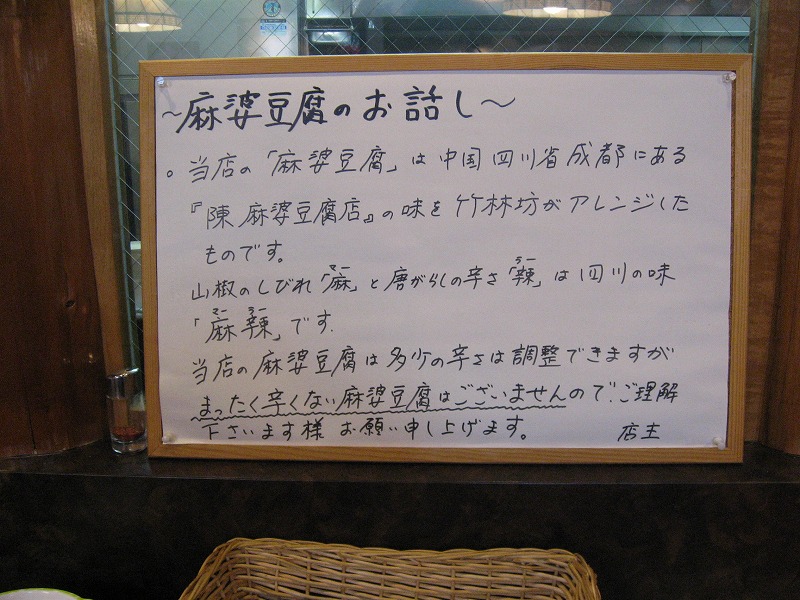 ～麻婆豆腐のお話し～
。当店の「麻婆豆腐」は中国四川省成都にある
『陳麻婆豆腐店』の味を竹林坊がアレンジした
ものです。
山椒のしびれ「麻」と唐がらしの辛さ「辣」は四川の味
「麻辣」です.
当店の麻婆豆腐は多少の辛さは調整できますが
まったく辛くない麻婆豆腐はございませんので、ご理解
下さいます様 お願い申し上げます。 店主